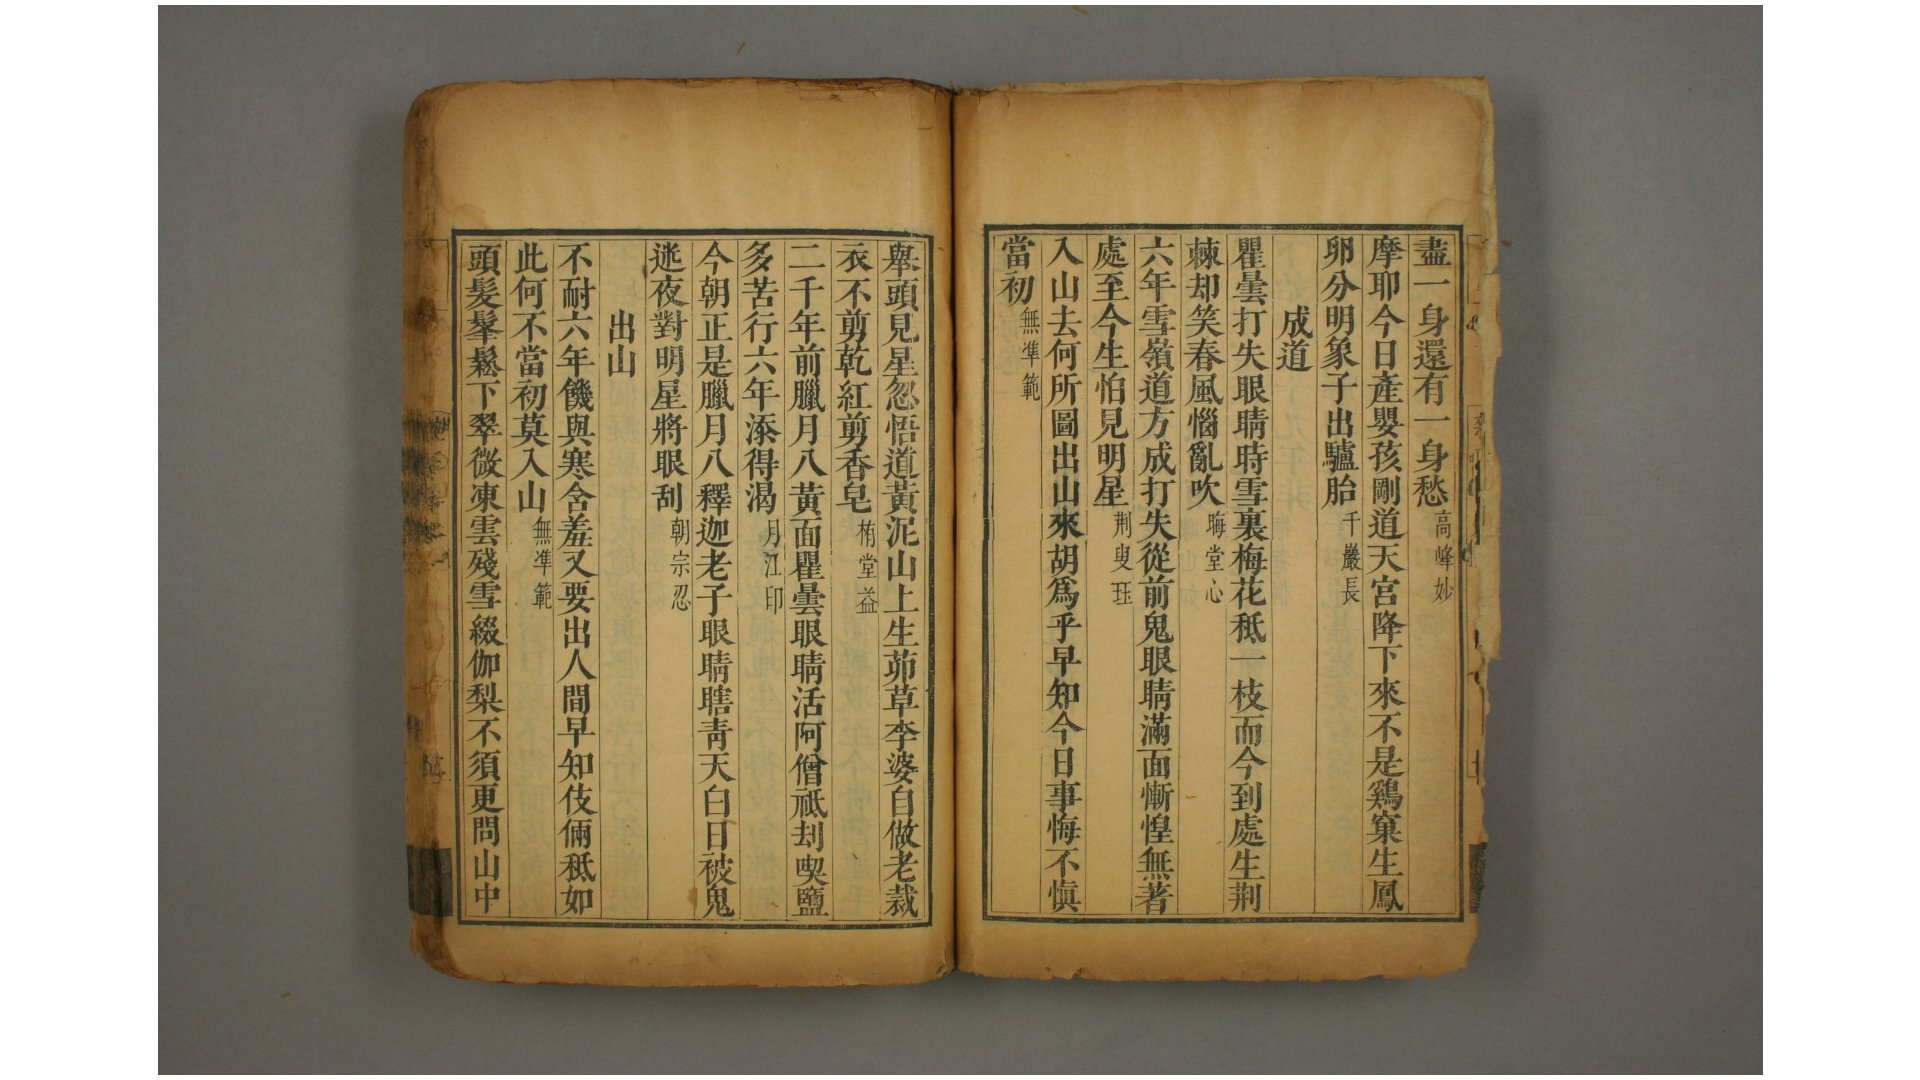 盡一身還有一身愁高峰妙
摩耶今日產嬰孩剛道天宮降下來不是鷄窠生鳳
卵分明象子出驢胎千巖長
成道
瞿曇打失眼睛時雪裏梅花秪一枝而今到處生荆
棘却笑春風惱亂吹晦堂心
六年雪嶺道方成打失從前鬼眼睛滿面慚惶無著
處至今生怕見明星荆叟珏
入山去何所圖出山來胡爲乎早知今日事悔不愼
當初無準範
舉頭見星忽悟道黃泥山上生茆草李婆自做老裁
衣不剪乾紅剪香皂栯堂益
二千年前臘月八黃面瞿曇眼睛活阿僧祗刦喫鹽
多苦行六年添得渴月江印
今朝正是臘月八釋迦老子眼睛瞎靑天白日被鬼
迷夜對明星將眼刮朝宗忍
出山
不耐六年饑與寒含羞又要出人間早知伎倆秪如
此何不當初莫入山無準範
頭髮鬅鬆下翠微凍雲殘雪綴伽梨不須更問山中